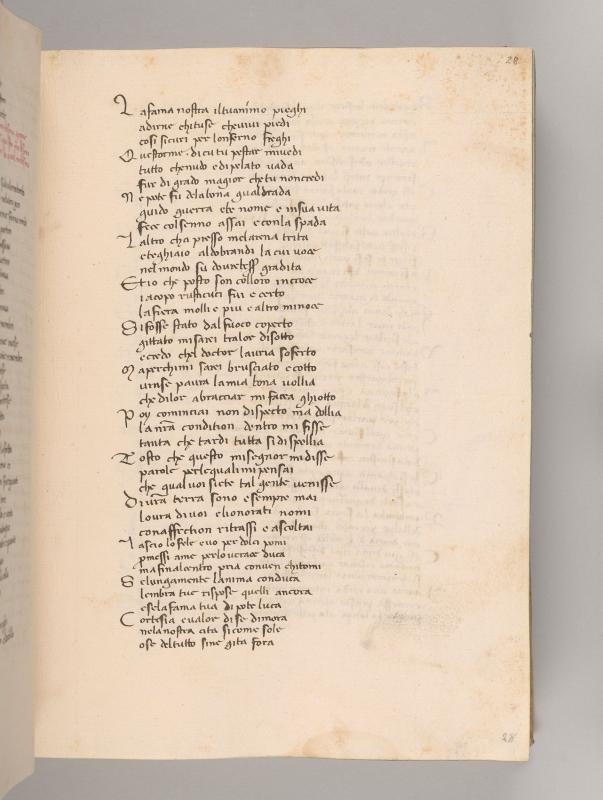 28
La fama nostra il tuanimo pieghi
adirne chituse cheuiui piedi
cosi sicuri per lonferno freghi
Questorme . di cu tu pestar miuedi
tutto chenudo e dipelato uada
fue di grado magior che tu noncredi
Nepote fu delabona gualdrada
guido guerra ebe nome e insua uita
fece colsenno assai e conla spada
Laltro cha presso melarena trita
eteghiaio aldobrandi la cui uoce
nelmondo su dourebess gradita
Et io che posto son colloro incroce
iacopo rusticuci fui e certo
la fiera moglie piu e altro minoce
Sifosse stato dal fuoco coperto
gittato misarei tralor disotto
e credo chel doctor lauria soferto
Maperchimi sarei brusciato e cotto
uinse paura lamia bona uollia
che dilor abracciar mi facea ghiotto
Poy cominciai non dispecto ma dollia
la nra condition dentro mi fisse
tanta che tardi tutta si dispollia
Tosto che questo misegnor midisse
parole perlequali mi pensai
che qual uoi siete tal gente uenisse
Diura terra sono e sempre mai
loura diuoi elionorati nomi
conaffection ritrassi e ascoltai
Lascio lo fele e uo per dolci pomi
pmessi ame perlouerace duca
ma finalcentro pria conuen chitomi
Se lungamente lanima conduca
lembra tue rispose quelli ancora
e sela fama tua di pote luca
Cortesia e ualor di se dimora
nelanostra cita si come sole
ose deltutto sine gita fora
28